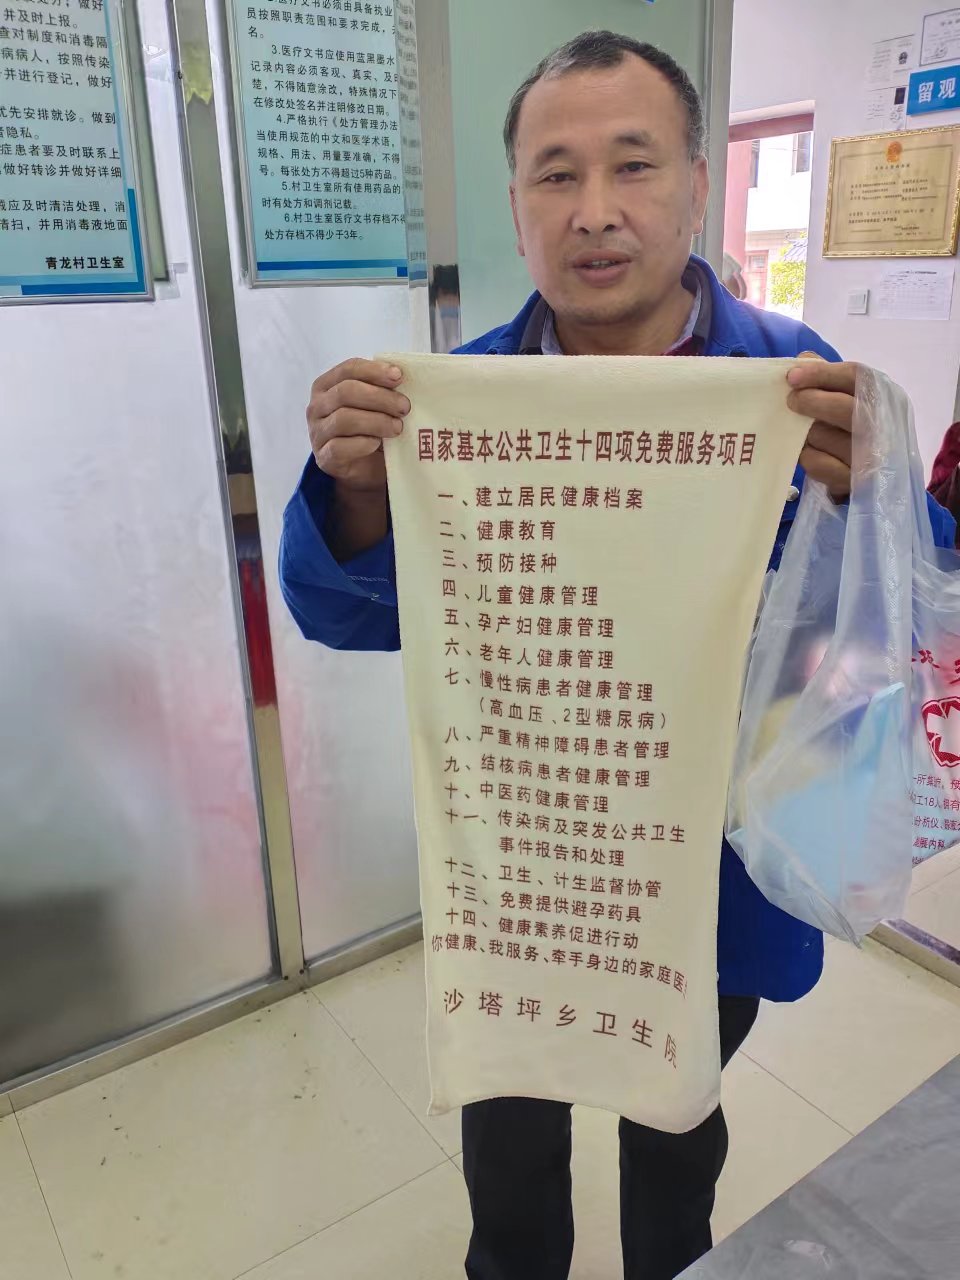 并及时上报。
查对制度和消毒隔
病病人，按照传染
并进行登记，做好
优先安排就诊。做到
者隐私。
症患者要及时联系上
做好转诊并做好详细
械应及时清洁处理，消
清扫，并用消毒液地面
青龙村卫生室
医疗文书必须由具备执业
员按照职责范围和要求完成，
名。
3.医疗文书应使用蓝黑墨水
记录内容必须客观、真实、及
楚，不得随意涂改，特殊情况下
在修改处签名并注明修改日期。
4.严格执行《处方管理办法
当使用规范的中文和医学术语，
规格、用法、用量要准确，不得
号。每张处方不得超过5种药品。
5.村卫生室所有使用药品的
时有处方和调剂记载。
6.村卫生室医疗文书存档不
处方存档不得少于3年。
留观
国家基本公共卫生十四项免费服务项目
一、建立居民健康档案
二、健康教育
三、预防接种
四、儿童健康管理
五、孕产妇健康管理
六、老年人健康管理
七、慢性病患者健康管理
（高血压、2型糖尿病）
八、严重精神障碍患者管理
九、结核病患者健康管理
十、中医药健康管理
十一、传染病及突发公共卫生
事件报告和处理
十二、卫生、计生监督协管
十三、免费提供避孕药具
十四、健康素养促进行动
你健康、我服务、牵手身边的家庭医
沙塔坪乡卫生院
工18人
分析仪
展内科